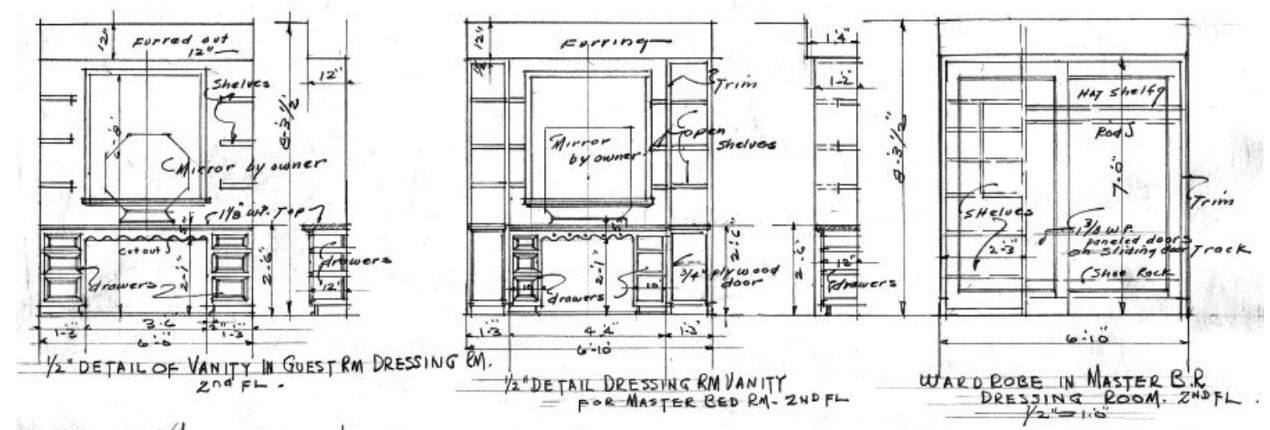 12"
Furred out
12"
Shelves
6'-8"
Mirror by owner
1 1/8" W.P. Top
5"
cutout
drawers
2'-1"
2'-6"
1'-3"
3'-6
1'-3
6'-0"
12"
drawers
12"
1/2" DETAIL OF VANITY IN GUEST RM DRESSING RM.
2nd FL.
12"
Furring
Trim
Mirror
by owner
open
shelves
5"
2'-1"
10"
drawers
10"
3/4" plywood
door
2'-6"
1'-3
4'-4"
1'-3"
6'-10"
1/2" DETAIL DRESSING RM VANITY
FOR MASTER BED RM - 2ND FL
1'-4"
1'-2"
2'-6"
12"
drawers
8'-3 1/2"
HAT Shelf
Rod
7'-0"
Trim
SHelves
2'-3"
1 3/8 W.P.
paneled doors
on sliding door Track
Shoe Rack
6'-10"
WARDROBE IN MASTER B.R
DRESSING ROOM. 2ND FL.
1/2" = 1'-0"